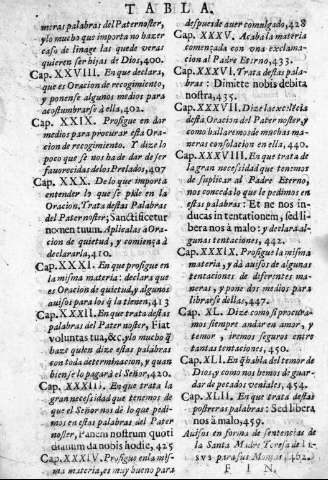 TABLA.
meras palabras del Paternoster,
y lo mucho que importa no hazer
caso de linage las que de veras
quieren ser hijas de Dios, 400.
Cap. XXVIII. En que declara,
que es Oracion de Recogimiento,
y ponense algunos medios para
acostumbrarse à ella, 402.
Cap. XXIX. Prosigue en dar
medios para procurar esta Ora-
cion de recogimiento. Y dize lo
poco que se nos ha de dar de ser
favorecidas de los Prelados, 407
Cap. XXX. De lo que importa
entender lo que se pide en la
Oracion. Trata destas Palabras
del Pater noster; Sanctificetur
nomen tuum. Aplicalas à Ora-
cion de quietud, y comiença à
declararla, 410.
Cap. XXXI. En que prosigue en
la misma materia: declara que
es Oracion de quietud, y algunos
auisos para los q̃ la tienen, 413
Cap. XXXII. En que trata destas
palabras del Pater noster, Fiat
voluntas tua, &c. y lo mucho q̃
haze quien dize estas palabras
con toda determinacion, y quan
bien se lo pagarà el Señor, 420.
Cap. XXXIII. En que trata la
gran necessidad que tenemos de
que el Señor nos dè lo que pedi-
mos en estas palabras del Pater
noster, Panem nostrum quoti
dianum da nobis hodie, 425
Cap. XXXIV. Prosigue en la mis-
ma materia, es muy bueno para
despues de auer comulgado, 428
Cap. XXXV. Acaba la materia
començada con vna exclama-
cion al Padre Eterno, 433.
Cap. XXXVI. Trata destas pala-
bras: Dimitte nobis debita
nostra, 435.
Cap. XXXVII. Dize la excelẽcia
desta Oracion del Pater noster, y
como hallaremos de muchas ma-
neras consolacion en ella, 440.
Cap. XXXVIII. En que trata de
la gran necessidad que tenemos
de suplicar al Padre Eterno,
nos conceda lo que le pedimos en
estas palabras: Et ne nos in-
ducas in tentationem, sed li-
bera nos à malo: y declara al-
gunas tentaciones, 442.
Cap. XXXIX. Prosigue la misma
materia, y dà auisos de algunas
tentaciones de diferentes ma-
neras, y pone dos medios para
librarse dellas, 447.
Cap. XL. Dize como si procura-
mos siempre andar en amor, y
temor, iremos seguros entre
tantas tentaciones, 450.
Cap. XLI. En q̃ habla del temor de
Dios, y como nos hemos de guar-
dar de pecados veniales, 454.
Cap. XLII. En que trata destas
postreras palabras: Sed libera
nos à malo, 459.
Auisos en forma de sentencias de
la Santa Madre Teresa de
para sus Monjas, 462.
FIN.